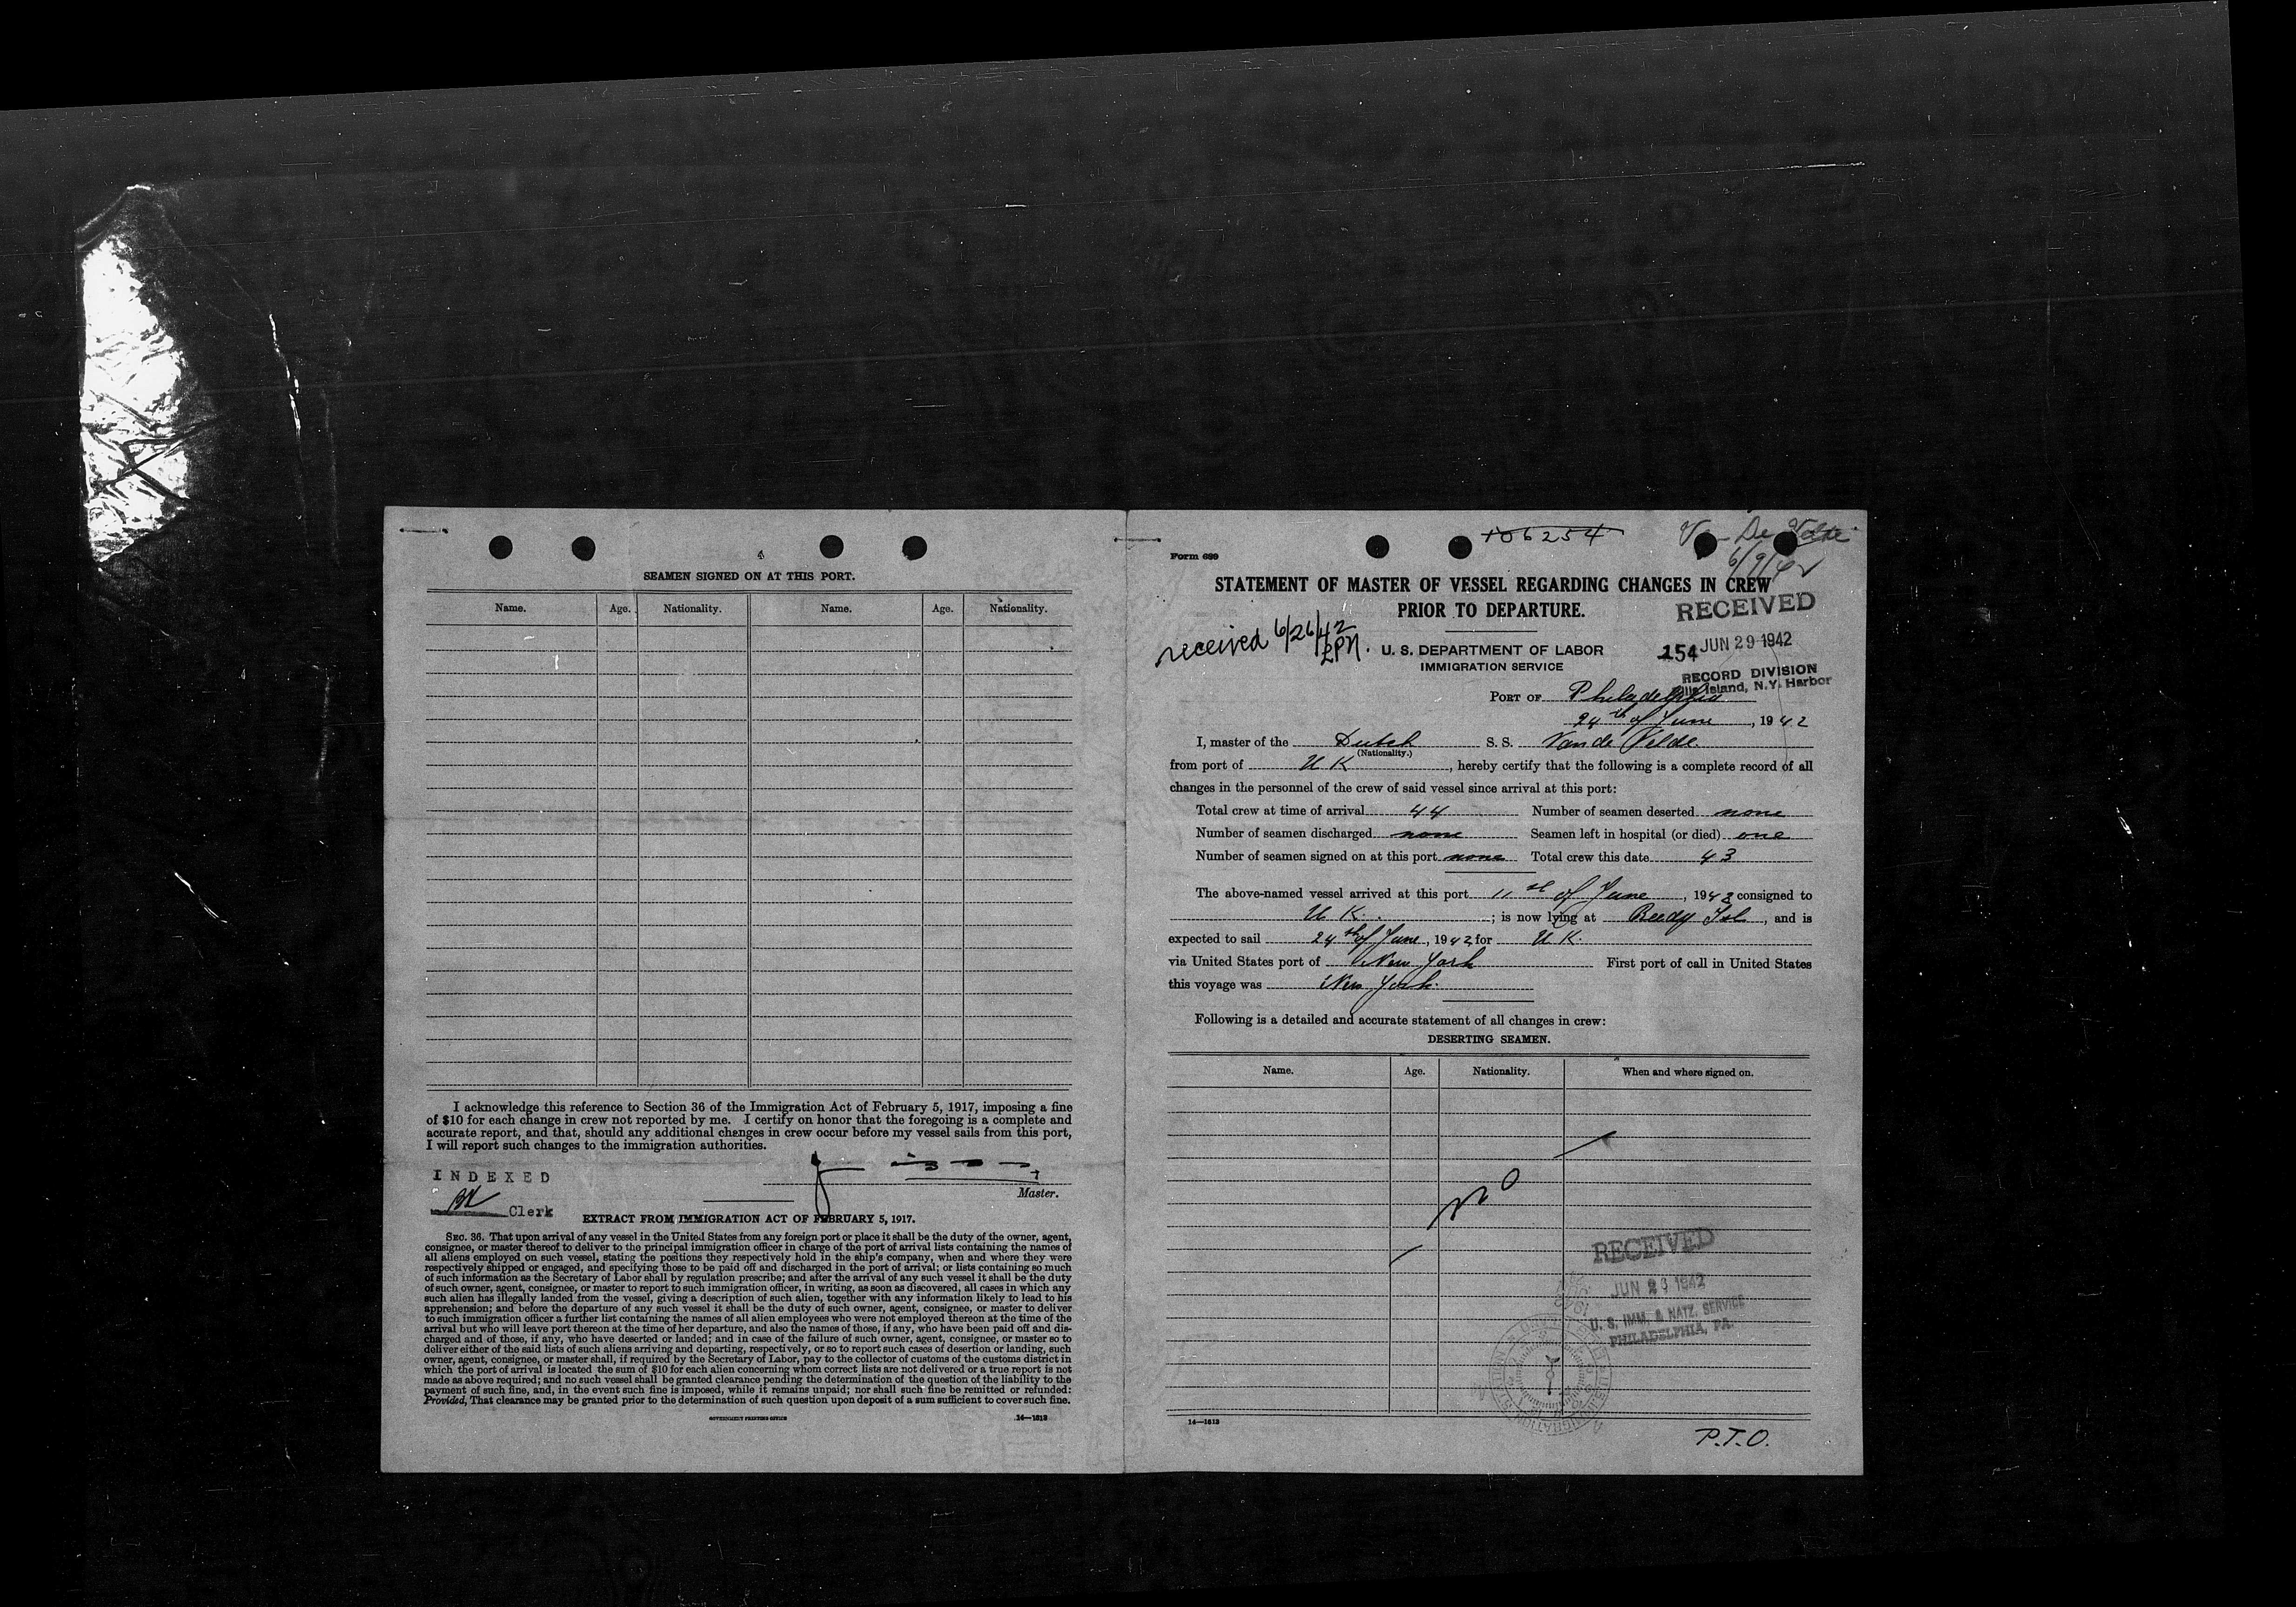 SEAMEN SIGNED ON AT THIS PORT.
Name. Age. Nationality. Name. Age. Nationality.
I acknowledge this reference to Section 36 of the Immigration Act of February 5, 1917, imposing a fine
of $10 for each change in crew not reported by me. I certify on honor that the foregoing is a complete and
accurate report, and that, should any additional changes in crew occur before my vessel sails from this port,
I will report such changes to the immigration authorities.
INDEXED
Master.
Clerk
EXTRACT FROM IMMIGRATION ACT OF FEBRUARY 5, 1917.
SEC. 36. That upon arrival of any vessel in the United States from any foreign port or place it shall be the duty of the owner, agent,
consignee, or master thereof to deliver to the principal immigration officer in charge of the port of arrival lists containing the names of
all aliens employed on such vessel, stating the positions they respectively hold in the ship's company, when and where they were
respectively shipped or engaged, and specifying those to be paid off and discharged in the port of arrival; or lists containing so much
of such information as the Secretary of Labor shall by regulation prescribe; and after the arrival of any such vessel it shall be the duty
of such owner, agent, consignee, or master to report to such immigration officer, in writing, as soon as discovered, all cases in which any
such alien has illegally landed from the vessel, giving a description of such alien, together with any information likely to lead to his
apprehension; and before the departure of any such vessel it shall be the duty of such owner, agent, consignee, or master to deliver
to such immigration officer a further list containing the names of all alien employees who were not employed thereon at the time of the
arrival but who will leave port thereon at the time of her departure, and also the names of those, if any, who have been paid off and dis-
charged and of those, if any, who have deserted or landed; and in case of the failure of such owner, agent, consignee, or master so to
deliver either of the said lists of such aliens arriving and departing, respectively, or so to report such cases of desertion or landing, such
owner, agent, consignee, or master shall, if required by the Secretary of Labor, pay to the collector of customs of the customs district in
which the port of arrival is located the sum of $10 for each alien concerning whom correct lists are not delivered or a true report is not
made as above required; and no such vessel shall be granted clearance pending the determination of the question of the liability to the
payment of such fine, and, in the event such fine is imposed, while it remains unpaid; nor shall such fine be remitted or refunded:
Provided, That clearance may be granted prior to the determination of such question upon deposit of a sum sufficient to cover such fine.
GOVERNMENT PRINTING OFFICE 14—1613
106254
6/9/42
Form 689
STATEMENT OF MASTER OF VESSEL REGARDING CHANGES IN CREW
PRIOR TO DEPARTURE.
RECEIVED
received 6/26/42
2PM.
U. S. DEPARTMENT OF LABOR
IMMIGRATION SERVICE
154 JUN 29 1942
RECORD DIVISION
Ellis Island, N.Y. Harbor
PORT OF Philadelphia
24th of June, 1942
I, master of the Dutch S. S. Van de Velde
(Nationality.)
from port of U K, hereby certify that the following is a complete record of all
changes in the personnel of the crew of said vessel since arrival at this port:
Total crew at time of arrival 44 Number of seamen deserted none
Number of seamen discharged none Seamen left in hospital (or died) one
Number of seamen signed on at this port none Total crew this date 43
The above-named vessel arrived at this port 11st of June, 1942 consigned to
U K.; is now lying at Reedy Isl, and is
expected to sail 24th of June, 1942 for U K.
via United States port of New York First port of call in United States
this voyage was New York.
Following is a detailed and accurate statement of all changes in crew:
DESERTING SEAMEN.
Name. Age. Nationality. When and where signed on.
No
RECEIVED
JUN 26 1942
U. S. IMM. & NATZ. SERVICE
PHILADELPHIA, PA.
14—1613
P.T.O.